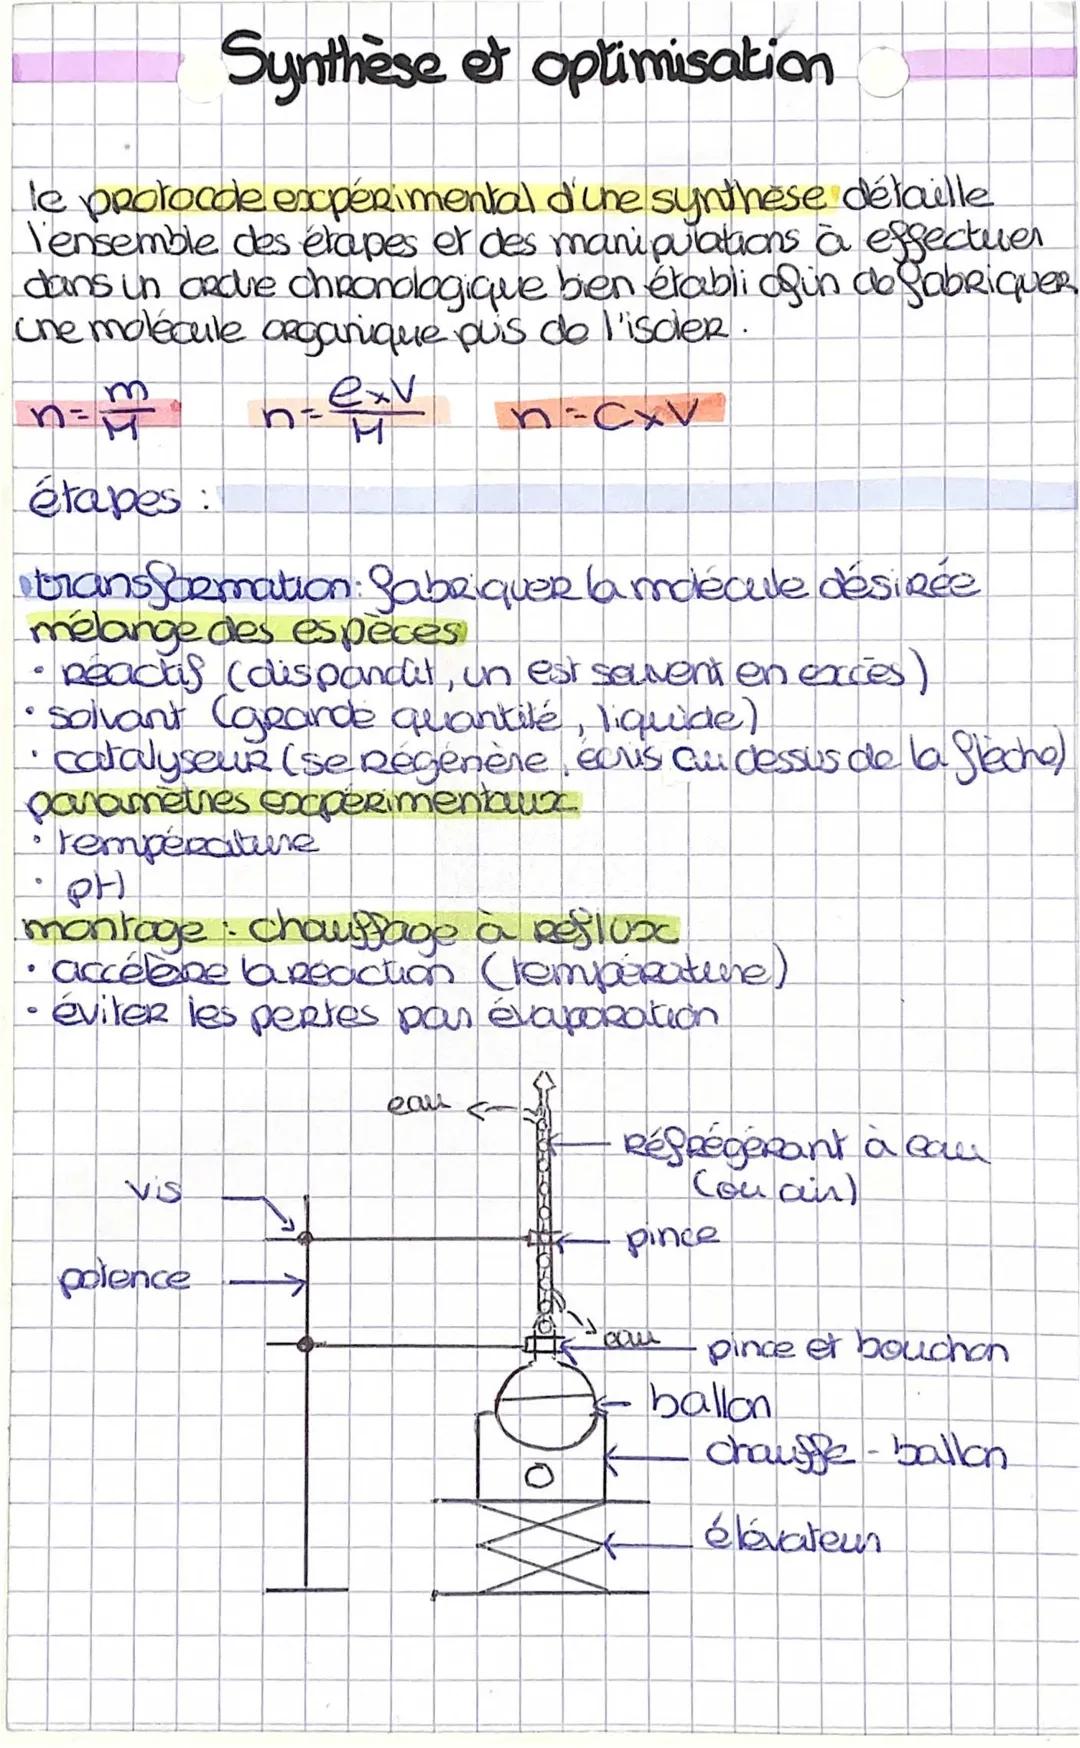 Synthèse et optimisation
le protocole expérimental d'une synthèse détaille
l'ensemble des étapes et des manipulations à effectuer
dans un ordre chronologique bien établi afin de fabriquer
une molécule organique puis de l'isoler.
n = m/M n = e×V/M n = C×V
étapes :
transformation: fabriquer la molécule désirée
mélange des espèces
• réactif (disparaît, un est souvent en excès)
• solvant (grande quantité, liquide)
• catalyseur (se régénère, écris au dessus de la flèche)
paramètres expérimentaux
• température
• pH
montage : chauffage à reflux
• accélère la réaction (température)
• éviter les pertes par évaporation
eau
réfrégérant à eau
(ou air)
vis
pince
potence
eau
pince et bouchon
ballon
chauffe-ballon
élévateur